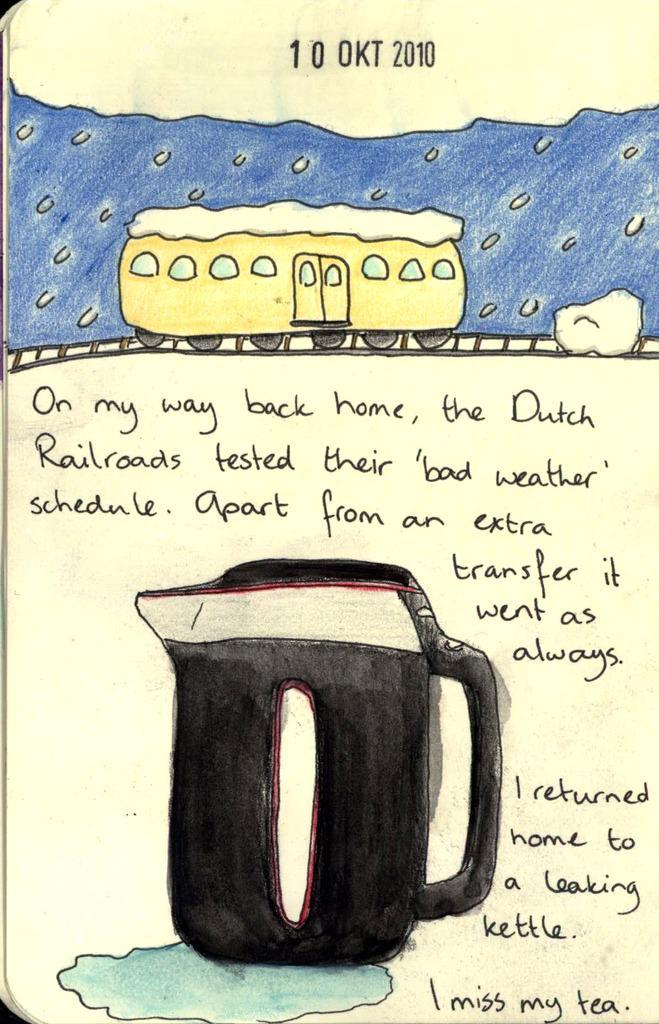 10 OKT 2010
On my way back home, the Dutch
Railroads tested their 'bad weather'
schedule. Apart from an extra
transfer it
went as
always.
I returned
home to
a leaking
kettle.
I miss my tea.